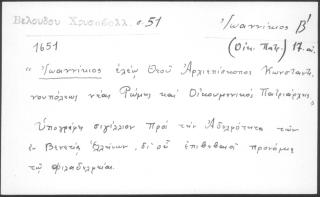 Βελούδου Χρυσόβουλλ. σ. 51
Ἰωαννίκιος Β'
1651
(Οἰκ. Πατρ.) 17. αἰ.
"Ἰωαννίκιος ἐλέῳ Θεοῦ Ἀρχιεπίσκοπος Κωνσταντι-
νουπόλεως νέας Ῥώμης καὶ Οἰκουμενικὸς Πατριάρχης"
Ὑπογράφει σιγίλλιον πρὸς τὴν Ἀδελφότητα τῶν
ἐν Βενετίᾳ Ἑλλήνων, δι' οὗ ἐπιβεβαιοῖ προνόμια
τῷ Φιλαδελφείας.